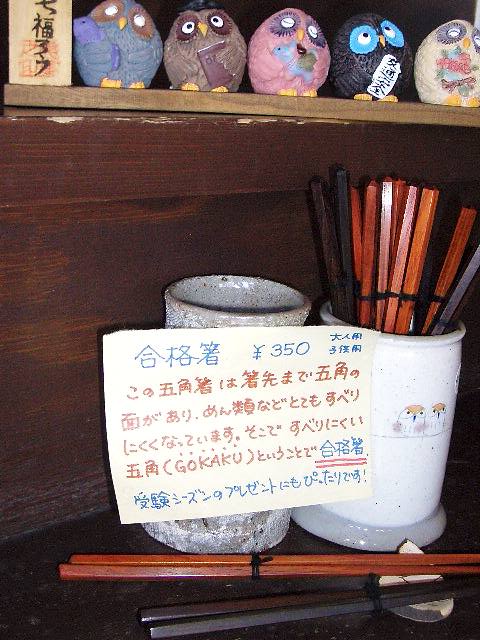 七福フク
合格箸 ¥350 大人用
子供用
この五角箸は箸先まで五角の
面があり、めん類などとてもすべり
にくくなっています。そこですべりにくい
五角(GOKAKU)ということで合格箸。
受験シーズンのプレゼントにもぴったりです!